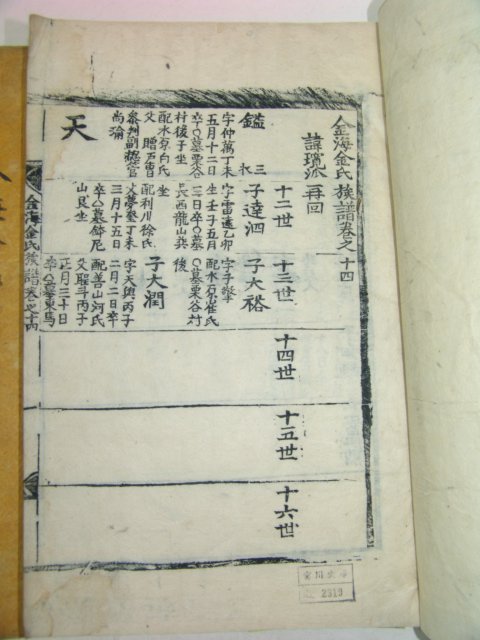 金海金氏族譜卷之十四
諱瓊派 再回
十二世
十三世
十四世
十五世
十六世
鑑
三
字仲萬丁未
五月十二日
卒〇墓栗谷
村後子坐
配水原白氏
父 贈戶曹
參判副摠管
尚瑜
天
子達泗
字雷遠乙卯
生壬子五月
三日卒〇墓
長西龍山巽
坐
配利川徐氏
父夢鰲丁未
三月十五日
卒〇墓鉢尼
山艮坐
子大裕
字子
配水原崔氏
〇墓栗谷村
後
子大潤
字天與丙子
二月二日卒
配善山河氏
父聖三丙子
正月三十日
卒〇墓東馬
金海金氏族譜卷之十四
2319